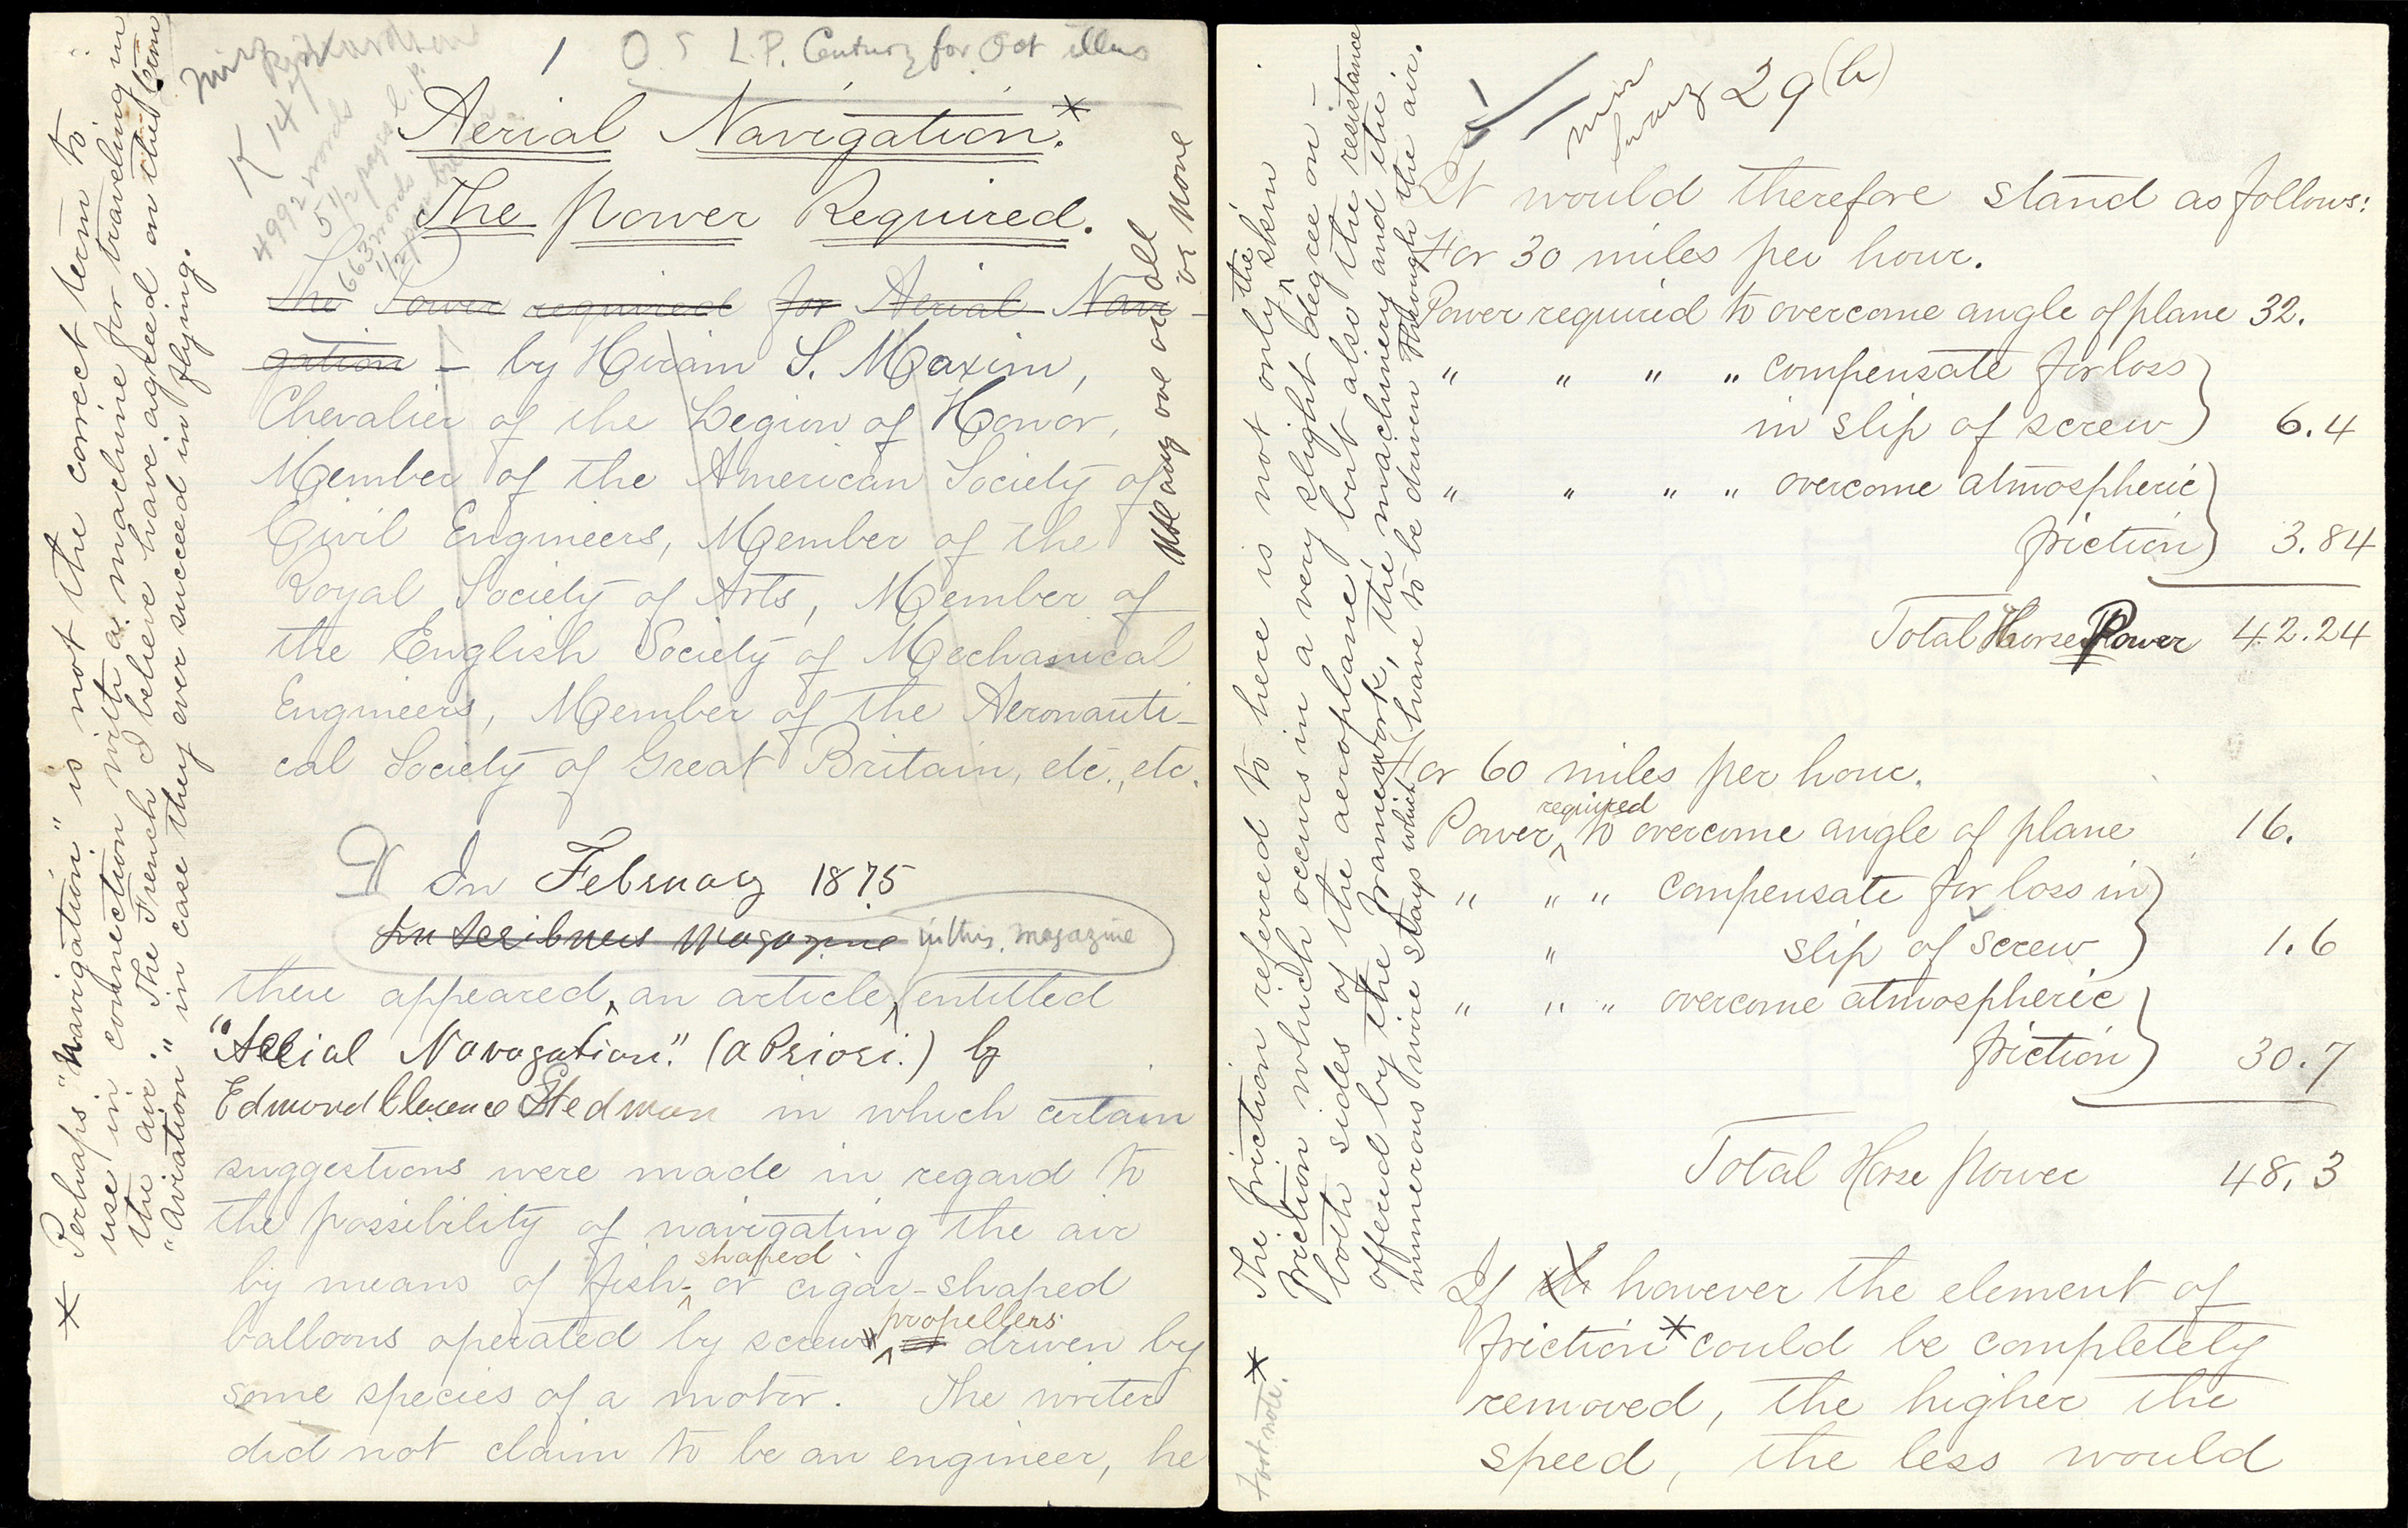 1 O. S L.P. Century for Oct illus
Miss Richardson
K 147
4992 words
5 1/2 pages l.p.
663 words
Aerial Navigation.*
The Power Required.
The Power required for Aerial Navi-
gation — by Hiram S. Maxim,
Chevalier of the Legion of Honor,
Member of the American Society of
Civil Engineers, Member of the
Royal Society of Arts, Member of
the English Society of Mechanical
Engineers, Member of the Aeronauti-
cal Society of Great Britain, etc., etc.
all
or none
In February 1875
In Scribners Magazine in this magazine
there appeared, an article, entitled
"Aerial Navagation." (a Priori.) by
Edmond Clarence Stedman in which certain
suggestions were made in regard to
the possibility of navigating the air
shaped
by means of fish- or cigar-shaped
propellers
balloons operated by screws driven by
some species of a motor. The writer
did not claim to be an engineer, he
* Perhaps "Navigation" is not the correct term to
use in connection with a machine for traveling in
the air. The French I believe have agreed on the term
"Aviation" in case they ever succeed in flying.
Miss
Swarz 29 (b)
It would therefore stand as follows:
For 30 miles per hour.
Power required to overcome angle of plane 32.
" " " " compensate for loss
in slip of screw } 6.4
" " " " overcome atmospheric
friction } 3.84
Total Horse Power 42.24
For 60 miles per hour.
required
Power ^ to overcome angle of plane 16.
" " " compensate for loss in
" slip of screw } 1.6
" " " overcome atmospheric
friction } 30.7
Total Horse power 48.3
If however the element of
friction* could be completely
removed, the higher the
speed, the less would
* The friction referred to here is not only the skin
friction which occurs in a very slight degree on
both sides of the aeroplane, but also the resistance
offered by the framework, the machinery and the
numerous wire stays which have to be driven through the air.
Foot note.